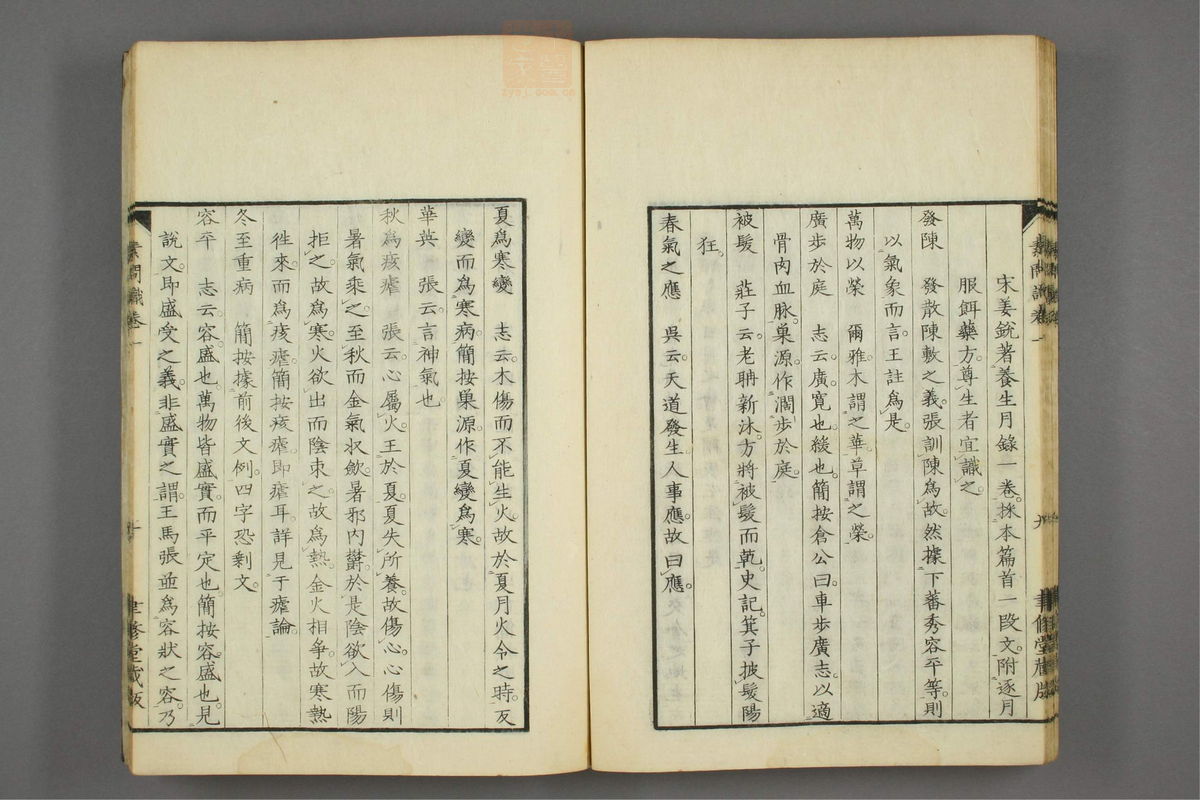 宋姜銳著養生月錄一卷。採本篇首一段文。附逐月
服餌藥方。尊生者宜識之
發陳　發散陳敷之義。張訓陳爲故。然據下蕃秀容平等。則
以氣象而言。王註爲是。
萬物以榮　爾雅。木謂之華。草謂之榮。
廣步於庭　志云。廣。寬也。緩也。簡按倉公曰。車步廣志。以適
骨肉血脉。巢源作濶步於庭。
被髮　莊子云。老聃新沐。方將被髮而乾。史記。箕子披髮陽
狂。
春氣之應　吳云。天道發生。人事應。故曰應
素問識卷一
九
聿修堂藏版
夏爲寒變　志云。木傷而不能生火。故於夏月火令之時。反
變而爲寒病。簡按巢源。作夏變爲寒。
華英　張云。言神氣也
秋爲痎瘧　張云。心屬火。王於夏。夏失所養。故傷心。心傷則
暑氣乘之。至秋而金氣收歛。暑邪内欝。於是陰欲入而陽
拒之。故爲寒。火欲出而陰束之。故爲熱。金火相爭。故寒熱
徃來。而爲痎瘧。簡按痎瘧。即瘧耳。詳見于瘧論。
冬至重病　簡按據前後文例。四字恐剩文。
容平　志云。容。盛也。萬物皆盛實。而平定也。簡按容。盛也。見
說文。即盛受之義。非盛實之謂。王馬張並爲容狀之容。乃
素問識卷一
十
聿修堂藏版